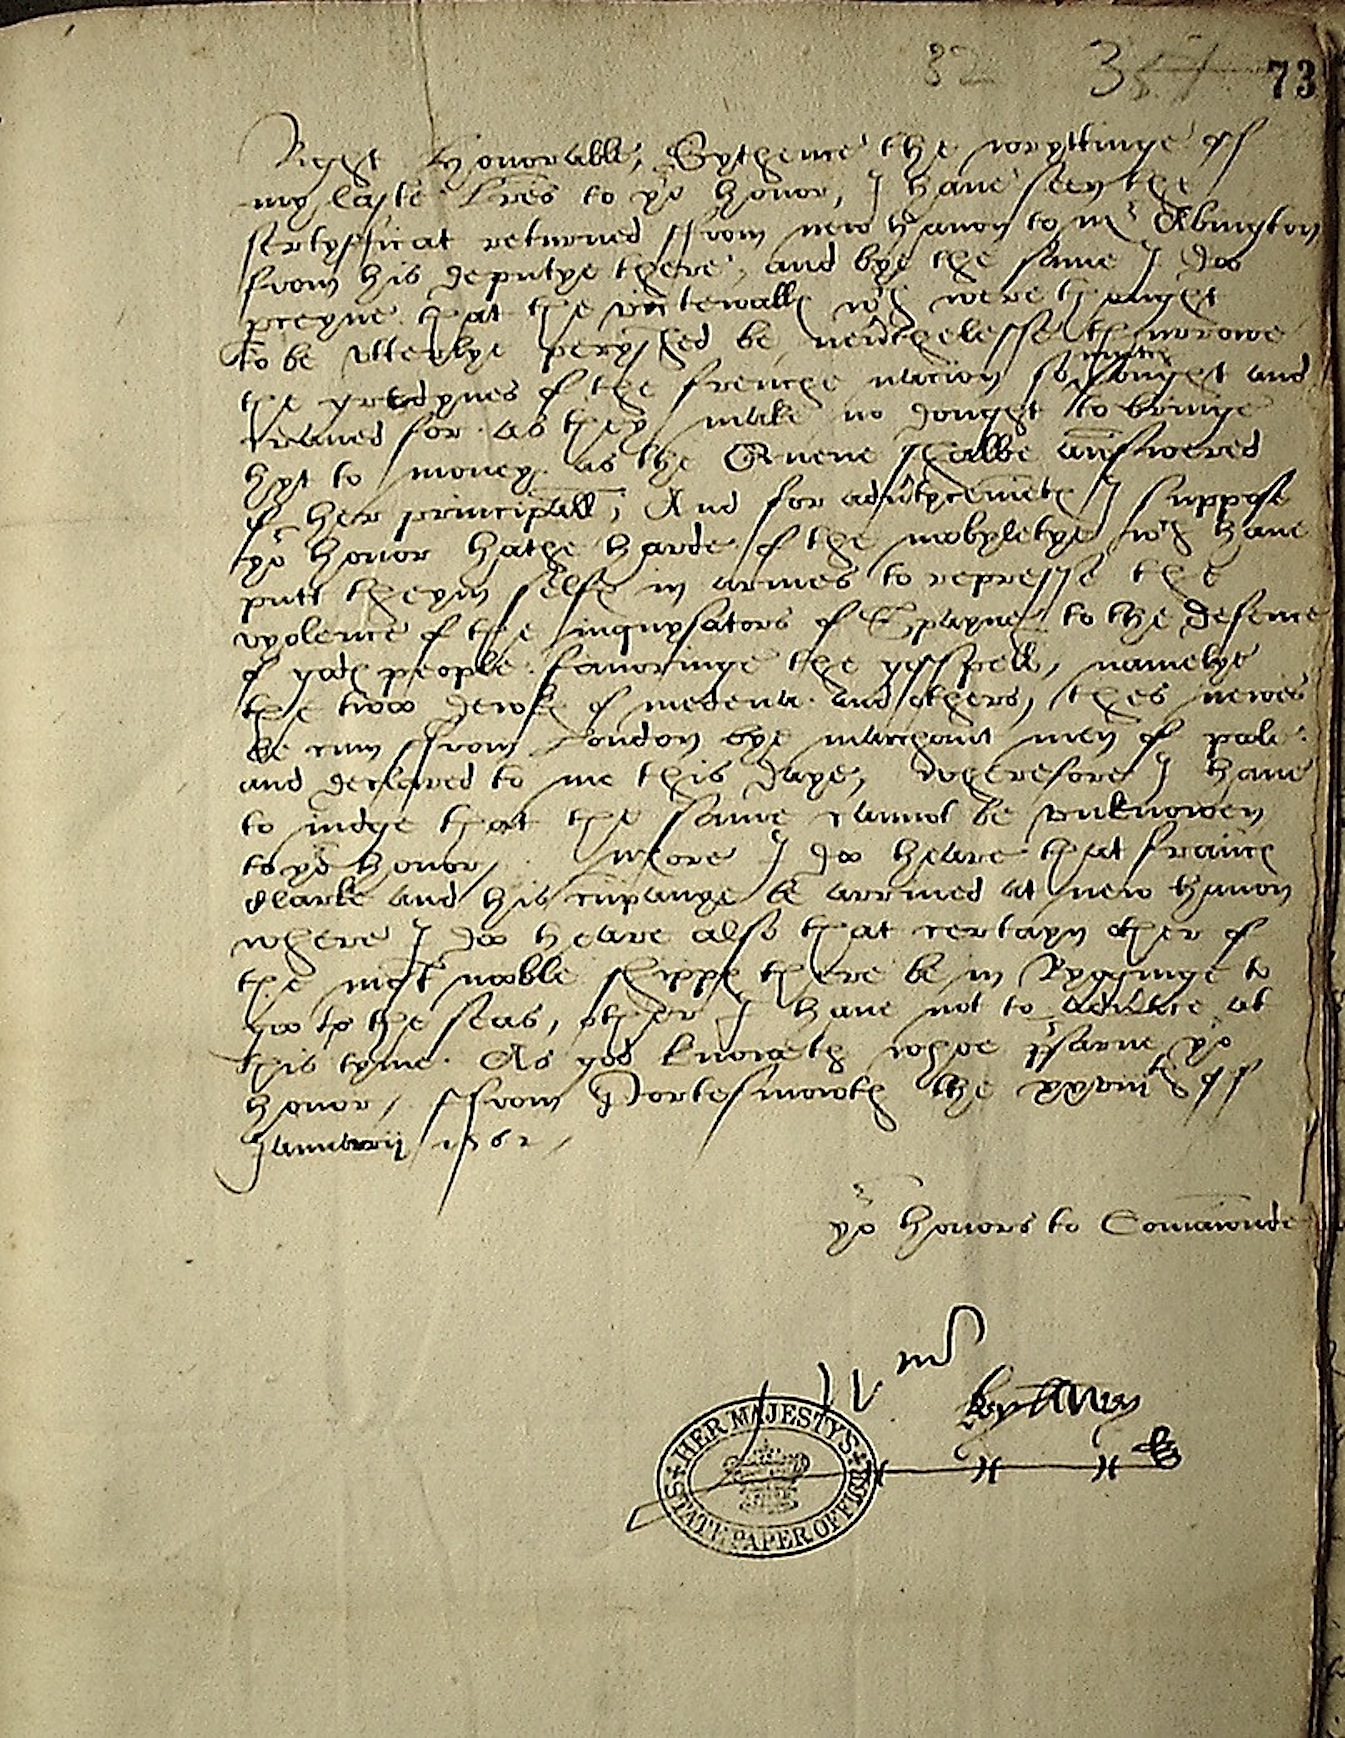 82 357 73
Right Honorable, Sythence the wryttinge off
my laste lres to yor honor, I have seen the
sertyfficat returned ffrom new haven to mr Abington
from his deputye there, and bye the same I doo
pceyve that the vittewalls wch were thought
to be vtterlye peryshed be nevrthelesse thorrowe
the gredynes of the frenche nacion so myche sought and
craved for as they make no dought to bringe
hyt to money as the Quene shalbe aunswered
of her principall, And for advrtycemets I suppose
yor honor hathe harde of the nobyletye wch have
putt theym selfs in armes to represse the
vyolence of the inquysators of Spayne to the defence
of gods people favoringe the gosspell, namelye
the two dewks of medena and others, thes newes
be cum ffrom London bye marchaunt men of pole
and declared to me this daye, wherefore I have
to judge that the same cannot be vnknowen
to yor honor, more I doo heare that fraincs
Clarke and his cupanye be arrived at new haven
where I doo heare also that certayn other of
the most nooble shipps there be in Ryggynge to
goo to the seas, other I have not to advrtice at
this tyme. As god knoweth whoe prsarve yor
honor, ffrom Portesmowth the xxviijth off
Januarij 1562
yor honors to Comaunde
HER MAJESTY'S
STATE PAPER OFFICE